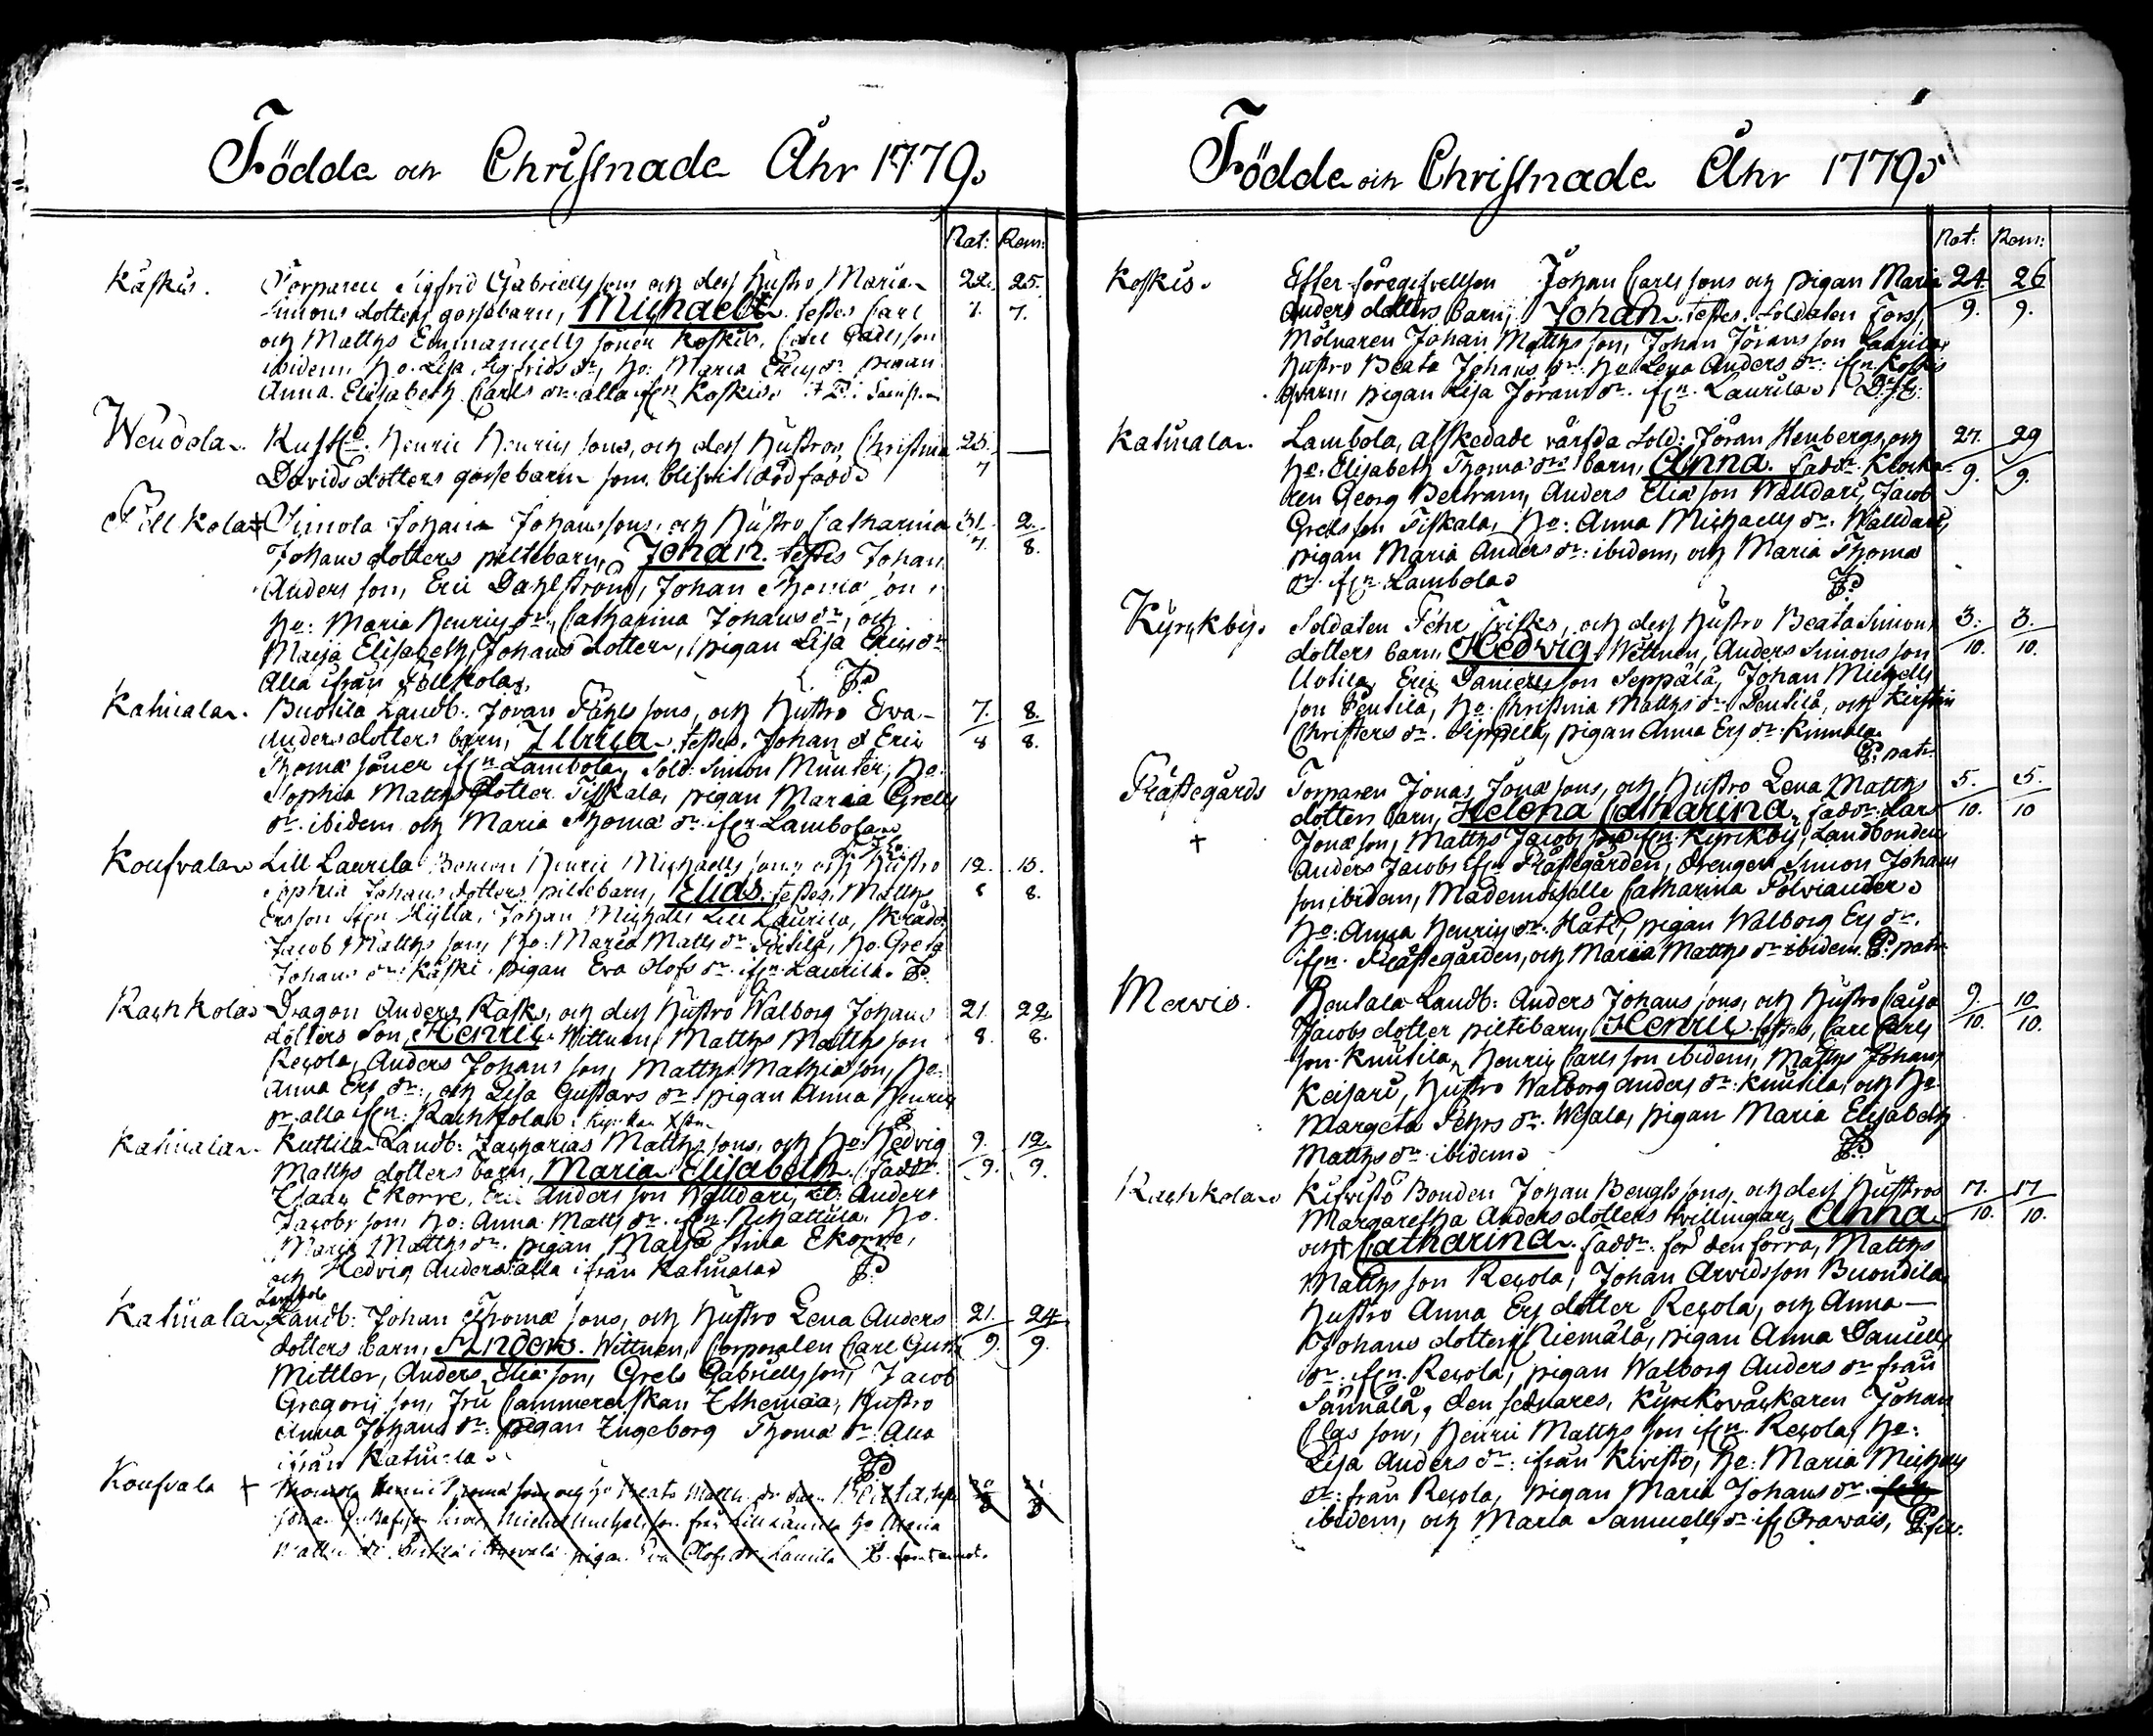 Födde och Christnade Åhr 1779.
Nat: Ren:
Käskis. Torparen Sigfrid Gabriells sons och dess hustro Maria 22. 25.
Simons dotters gossebarn, Michaell. testes Carl 7. 7.
och Matths Emmanuells söner Koskis, Carl Carlsson
ibidem, ho. Lisa Sigfrids dr, ho: Maria Erics dr pigan
Anna Elisabeth Carls dr alla ifrn Koskis.
Wendola. Henric Henrics sons, och dess hustros Christina 25. —
Davids dotters gossebarn som blifvit dödfödd 7
Simola Johan Johans sons, och hustro Catharina 31. 2.
Johans dotters piltebarn, Johan. testes Johan 7. 8.
Anders son, Eric Dahlström, Johan Thomæ son,
ho: Maria Henrics dr, Catharina Johans dr, och
Maija Elisabeth Johans dotter, pigan Lisa Erics dr
Alla ifrån
Katiuala. Buotila Landb: Jöran Påhls sons, och hustro Eva 7. 8.
Anders dotters barn, Ulrica. testes, Johan & Eric 8 8.
Thomæ söner ifrn Lambola, Sold: Simon Munter, ho:
Sophia Matths dotter Tiskala, pigan Maria Grels
dr ibidem och Maria Thomæ dr ifrn Lambola
Koufvala Lill Laurila Bonden Henric Michaells sons och hustro 12. 15.
Sophia Johans dotters piltebarn, Elias. testes, Matths 8 8.
Ersson ifrn Hylla, Johan Michells Lill Laurila, Skrädd:
Jacob Matths son, ho: Maria Matts dr Pertilä, ho. Greta
Johans dr: Käski, pigan Eva Olofs dr ifrn Laurila.
Rachkola Dragon Anders Rask, och dess hustro Walborg Johans 21. 22.
dotters Son, Henric. Wittnen, Matths Matths son 8. 8.
Reçola, Anders Johans son, Matths Mathiæ son, ho:
Anna Ers dr, och Lisa Gustavs dr pigan Anna Henrics
dr alla ifrn: Rachkola
Katiuala. Kuttila Landb: Zacharias Matths sons, och ho: Hedvig 9. 12.
Matths dotters barn, Maria Elisabeth. faddr. 9. 9.
Isaac Ekorre, Eric Anders son Walldari, Anders
Jacobs son, ho: Anna Matts dr. ho.
Maria Matths dr. pigan Maija Stina Ekorre,
och Hedvig Anders alla ifrån Katiuala
Lambola
Katiuala Landb: Johan Thomæ sons, och hustro Lena Anders 21. 24.
dotters barn, Anders. Wittnen, Corporalen Carl Gust: 9. 9.
Mittler, Anders Eliæ son, Grels Gabriells son, Jacob
Gregorii son, Fru Cammererskan Ethemæa, hustro
Anna Johans dr: pigan Ingeborg Thomæ dr: Alla
ifrån Katiuala.
Koufvala + Henric Thomæ sons och ho Beata Matth. dr barn
Michel Michels son från Lill Laurila ho Maria
pigan Eva Olofs dr Laurila
Födde och Christnade Åhr 1779.
Nat: Ren:
Koskis. Johan Carls sons och pigan Maria 24. 26
Anders dotters barn, Johan. testes. Soldaten Fors, 9. 9.
Mölnaren Johan Matths son, Johan Jörans son Laurila,
hustro Beata Johans dr: ho Lena Anders dr: ifrn. Koskis
qvarn, pigan Lisa Jörans dr. ifrn. Laurila.
Katiuala. Lambola, afskedade värfda Sold: Jöran Henbergs, och 27. 29
ho: Elisabeth Thomæ drs barn, Anna. faddr. Klocka- 9. 9.
ren Georg Bertram, Anders Eliæ son Walldari, Jacob
Grels son Tiskala, ho: Anna Michaells dr. Walldari,
pigan Maria Anders dr: ibidem, och Maria Thomæ
dr. ifrn. Lambola
Kyrckby. Soldaten Pehr Frisks, och dess hustro Beata Simons 3. 3.
dotters barn, Hedvig. Wittnen, Anders Simons son 10. 10.
Uotila, Eric Daniels son Seppälä, Johan Michells
son Pentila, ho: Christina Matths dr Pentila, och Kirstin
Christers dr. Sippilä, pigan Anna Ers dr: Kinnala
Prästegårds Torparen Jonas Jonæ sons, och hustro Lena Matths 5. 5.
dotters barn, Helena Catharina. faddr: Lars 10. 10
+ Jonæ son, Matths Jacobs son ifrn. Kyrckby, Landbonden
Anders Jacobs ifrn Prästegården, Drengen Simon Johans
son ibidem, Mademoiselle Catharina Polviander.
ho: Anna Henrics dr. pigan Walborg Ers dr.
ifrn. Prästegården, och Maria Matths dr ibidem.
Mervis. Rentala Landb: Anders Johans sons, och hustro Caisa 9. 10.
Jacobs dotter piltebarn, Henric. testes, Carl Carls 10. 10.
son Knutila, Henric Carls son ibidem, Matths Johans
Keisari, hustro Walborg Anders dr. Knutila, och ho
Margeta Pehrs dr. Wesala, pigan Maria Elisabeth
Matths dr ibidem
Rachkola Kivistö Bonden Johan Bengts sons, och dess hustros 17. 17
Margaretha Anders dotters tvillingar, Anna 10. 10.
och Catharina. faddr. för den förra, Matths
Matths son Reçola, Johan Arvidsson Buondila
hustro Anna Ers dotter Reçola, och Anna —
Johans dotter Niemälä, pigan Anna Daniells
dr: ifrn. Reçola, pigan Walborg Anders dr från
Sännälä, den sednares, Kyrckoväcktaren Johan
Clas son, Henric Matths son ifrn. Reçola, ho:
Lisa Anders dr: ifrån Kivistö, ho: Maria Michells
dr: från Reçola, pigan Maria Johans dr.
ibidem, och Maria Samuells dr ifrn Orawais,